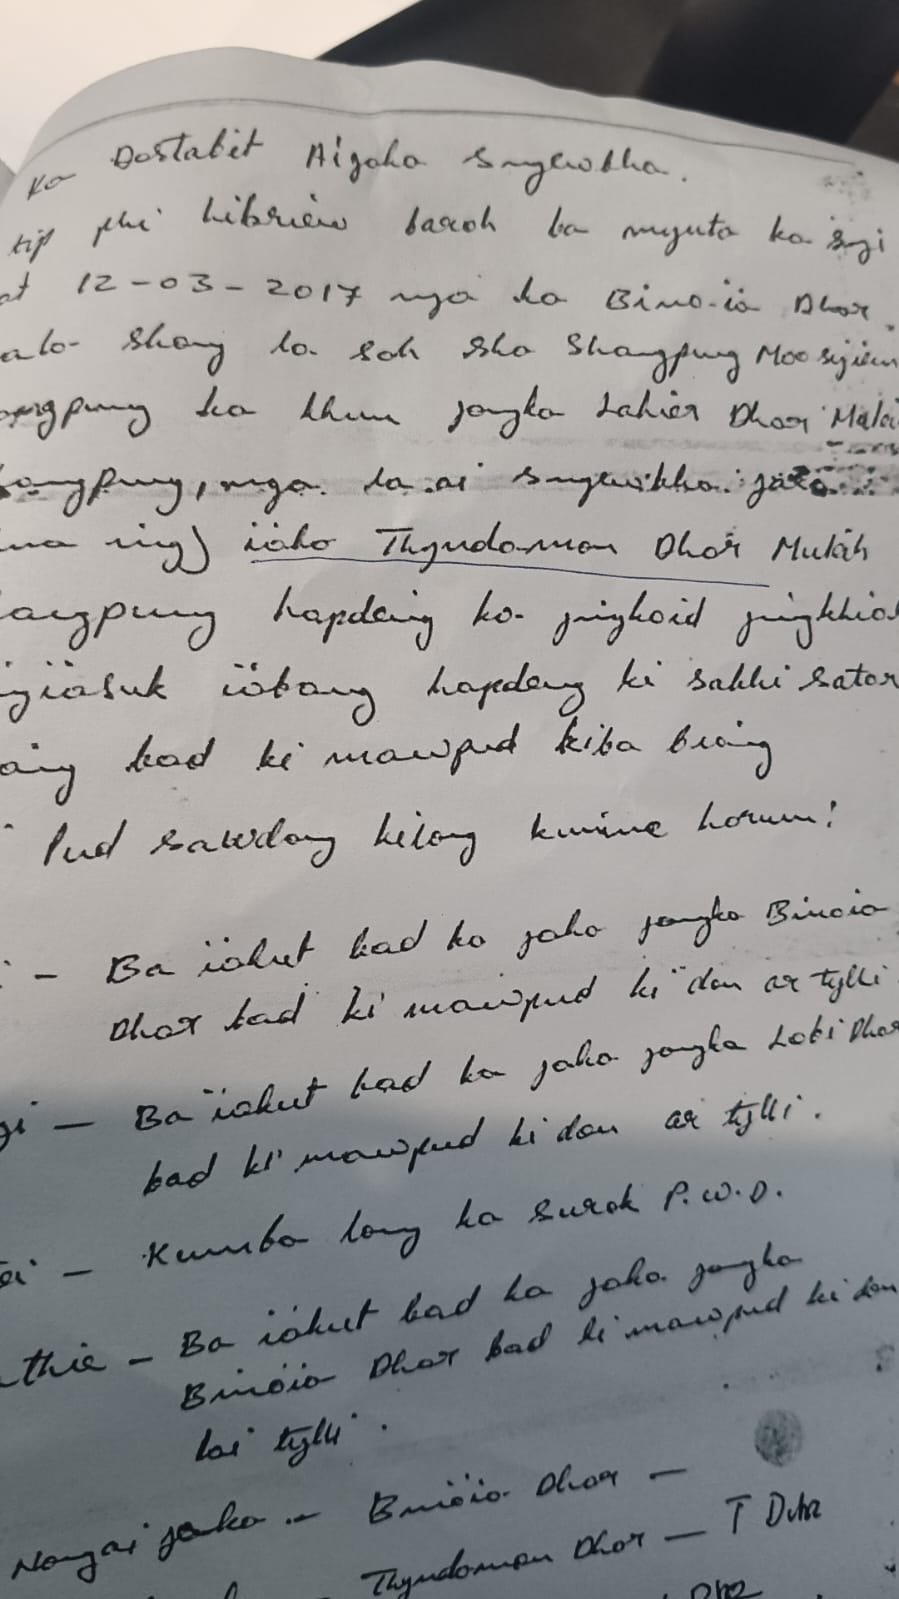 ka Dostabit Aijaka Sngewbha.
tip phi kibriew baroh ba mynta ka sngi
12-03-2017 nga ka Binoia Dhar
shong la soh sha Shangpung Moosyiem
ka khun jongka Lahier Dhar
nga la ai sngewbha jaka
ing) ïako Thyndamon Dhar Mulah
hapdeng ka jingkoid
ïobang hapdeng ki sakhi sator
bad ki mawpud kiba biang
Pud sawdong kilong kumne harum:
- Ba ïakut bad ka jaka jongka Binoia
Dhar bad ki mawpud ki don ar tylli
- Ba ïakut bad ka jaka jongka Lobi Dhar
bad ki mawpud ki don ar tylli.
- Kumba long ka surok P.W.D.
thie - Ba ïakut bad ka jaka jongka
Binoia Dhar bad ki mawpud ki don
lai tylli.
Nongai jaka - Binoia Dhar -
Thyndamon Dhar - T Dhar